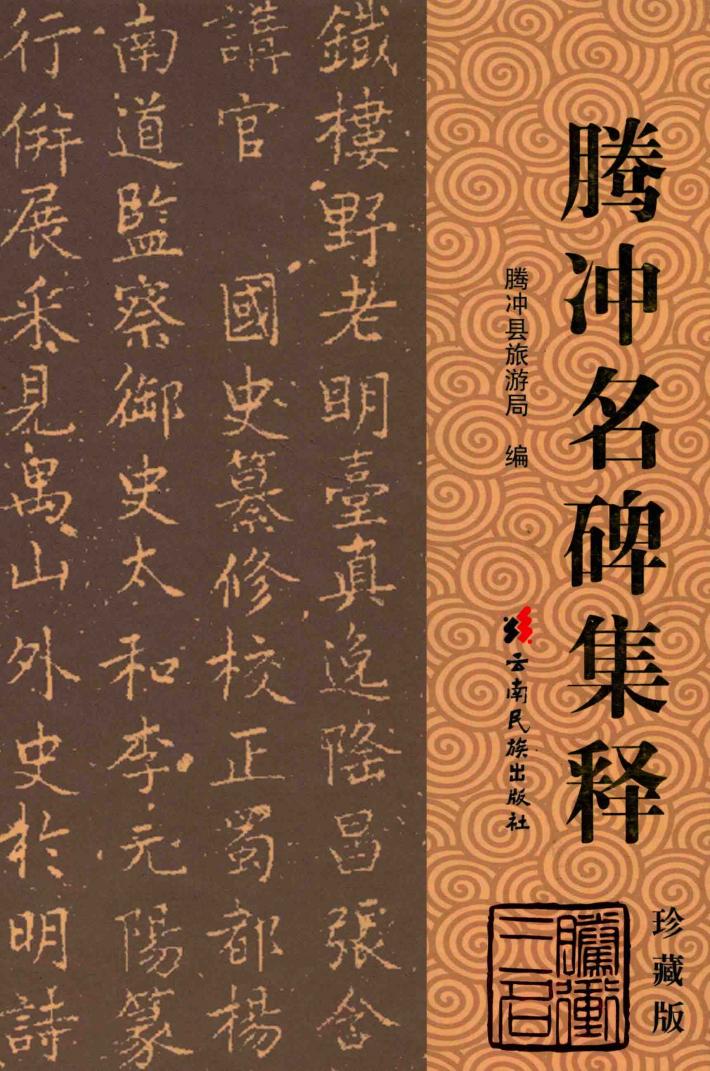 腾冲名碑集释
珍藏版
腾冲县旅游局 编
云南民族出版社
鐵樓野老明臺真逸隆昌張含
講官 國史纂修校正蜀都楊
南道監察御史太和李元陽篆
行 展采見禺山外史於明詩